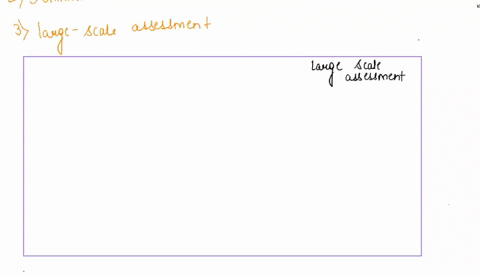 3) large-scale assessment
large scale
assessment